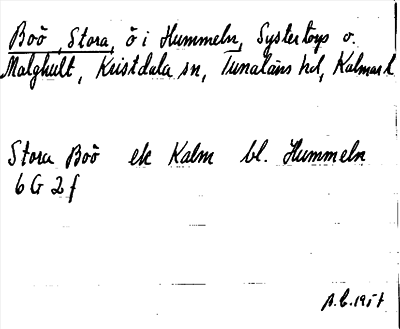 Boö, Stora, ö i Hummeln, Systertorps o.
Malghult, Kristdala sn, Tunaläns hd, Kalmar l
Stora Boö ek Kalm bl. Hummeln
6 G 2 f